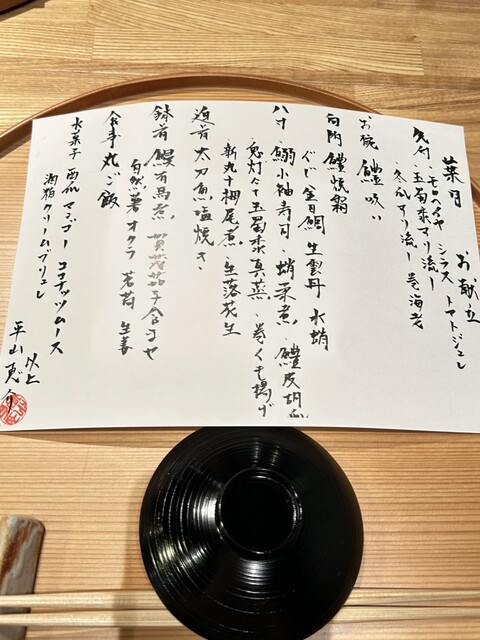 葉月 お献立
先付 モロヘイヤ シラス トマトジュレ
・玉蜀黍スリ流し
・冬瓜スリ流し 巻海老
お椀 鱧吸い
向附 鱧焼霜
ぐじ 金目鯛 生雲丹 水蛸
八寸 鰯小袖寿司・蛸柔煮・鱧皮胡瓜
鬼灯たて玉蜀黍真蒸・巻くも揚げ
・新丸十梔尾煮・生落花生
迫肴 太刀魚塩焼き
鉢肴 鰻有馬煮 賀茂茄子合わせ
自然薯 オクラ 茗荷 生姜
食事 丸ご飯
水菓子 南瓜 マンゴー ココナッツムース
酒粕クリームブリュレ
以上
平山